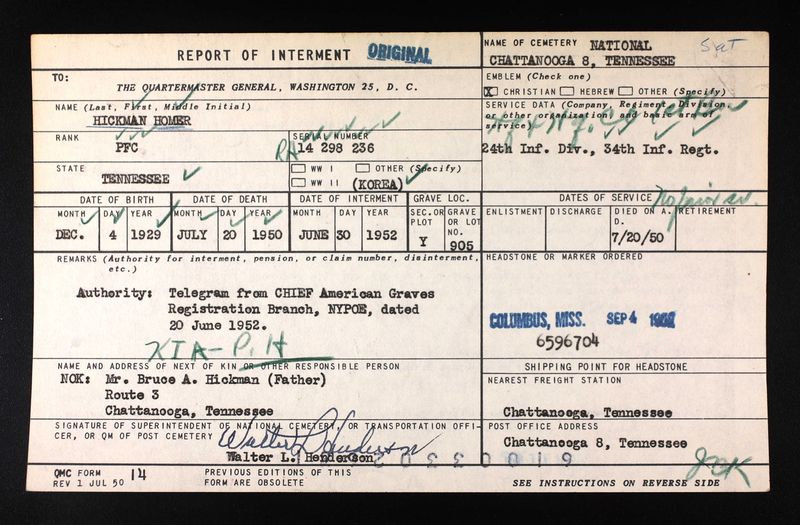 REPORT OF INTERMENT ORIGINAL
NAME OF CEMETERY NATIONAL
CHATTANOOGA 8, TENNESSEE
Sgt
TO:
THE QUARTERMASTER GENERAL, WASHINGTON 25, D. C.
EMBLEM (Check one)
X CHRISTIAN HEBREW OTHER (Specify)
NAME (Last, First, Middle Initial)
HICKMAN HOMER
SERVICE DATA (Company, Regiment, Division,
or other organization, and basic arm of
service)
24th Inf. Div., 34th Inf. Regt.
RANK
PFC
SERIAL NUMBER
RA 14 298 236
STATE
TENNESSEE
WW I OTHER (Specify)
WW II (KOREA)
DATE OF BIRTH DATE OF DEATH DATE OF INTERMENT GRAVE LOC. DATES OF SERVICE
MONTH DAY YEAR MONTH DAY YEAR MONTH DAY YEAR SEC. OR PLOT GRAVE OR LOT NO. ENLISTMENT DISCHARGE DIED ON A. D. RETIREMENT
DEC. 4 1929 JULY 20 1950 JUNE 30 1952 Y 905 7/20/50
REMARKS (Authority for interment, pension, or claim number, disinterment,
etc.)
Authority: Telegram from CHIEF American Graves
Registration Branch, NYPOE, dated
20 June 1952.
KIA - P.H
HEADSTONE OR MARKER ORDERED
COLUMBUS, MISS. SEP 4 1952
6596704
NAME AND ADDRESS OF NEXT OF KIN OR OTHER RESPONSIBLE PERSON
NOK: Mr. Bruce A. Hickman (Father)
Route 3
Chattanooga, Tennessee
SHIPPING POINT FOR HEADSTONE
NEAREST FREIGHT STATION
Chattanooga, Tennessee
SIGNATURE OF SUPERINTENDENT OF NATIONAL CEMETERY, OR TRANSPORTATION OFFI-
CER, OR QM OF POST CEMETERY
Walter L Henderson
Walter L. Henderson
POST OFFICE ADDRESS
Chattanooga 8, Tennessee
QMC FORM 14
REV 1 JUL 50
PREVIOUS EDITIONS OF THIS
FORM ARE OBSOLETE
SEE INSTRUCTIONS ON REVERSE SIDE